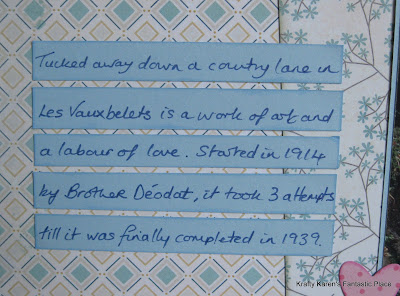 Tucked away down a country lane in
Les Vauxbelets is a work of art and
a labour of love. Started in 1914
by Brother Déodat, it took 3 attempts
till it was finally completed in 1939.
Krafty Karen's Fantastic Place